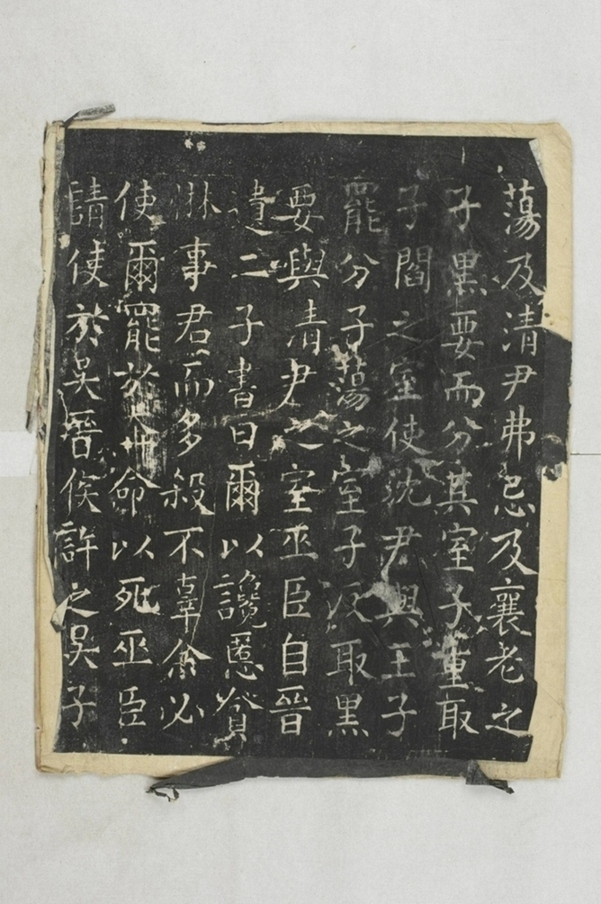 蕩及清尹弗忌及襄老之
子黑要而分其室子重取
子閻之室使沈尹與王子
罷分子蕩之室子反取黑
要與清尹之室巫臣自晉
遺二子書曰爾以讒慝貪
惏事君而多殺不辜余必
使爾罷於奔命以死巫臣
請使於吳晉侯許之吳子